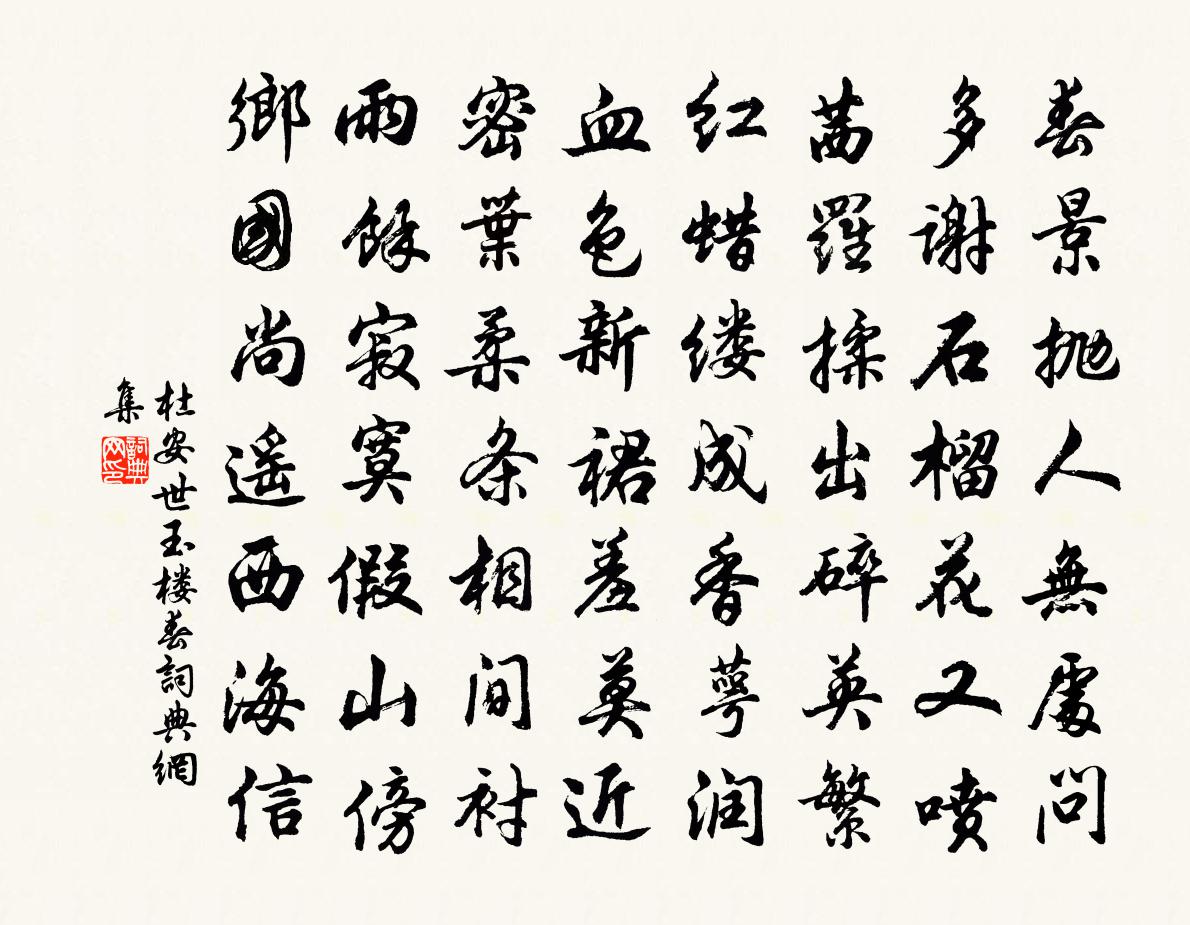 春景抛人無處問
多謝石榴花又喷
茜羅揉出碎英繁
红蜡缕成香萼润
血色新裙羞莫近
密葉柔条相间衬
雨餘寂寞假山傍
鄉國尚遥西海信
杜安世玉楼春詞典網
集
詞典网印